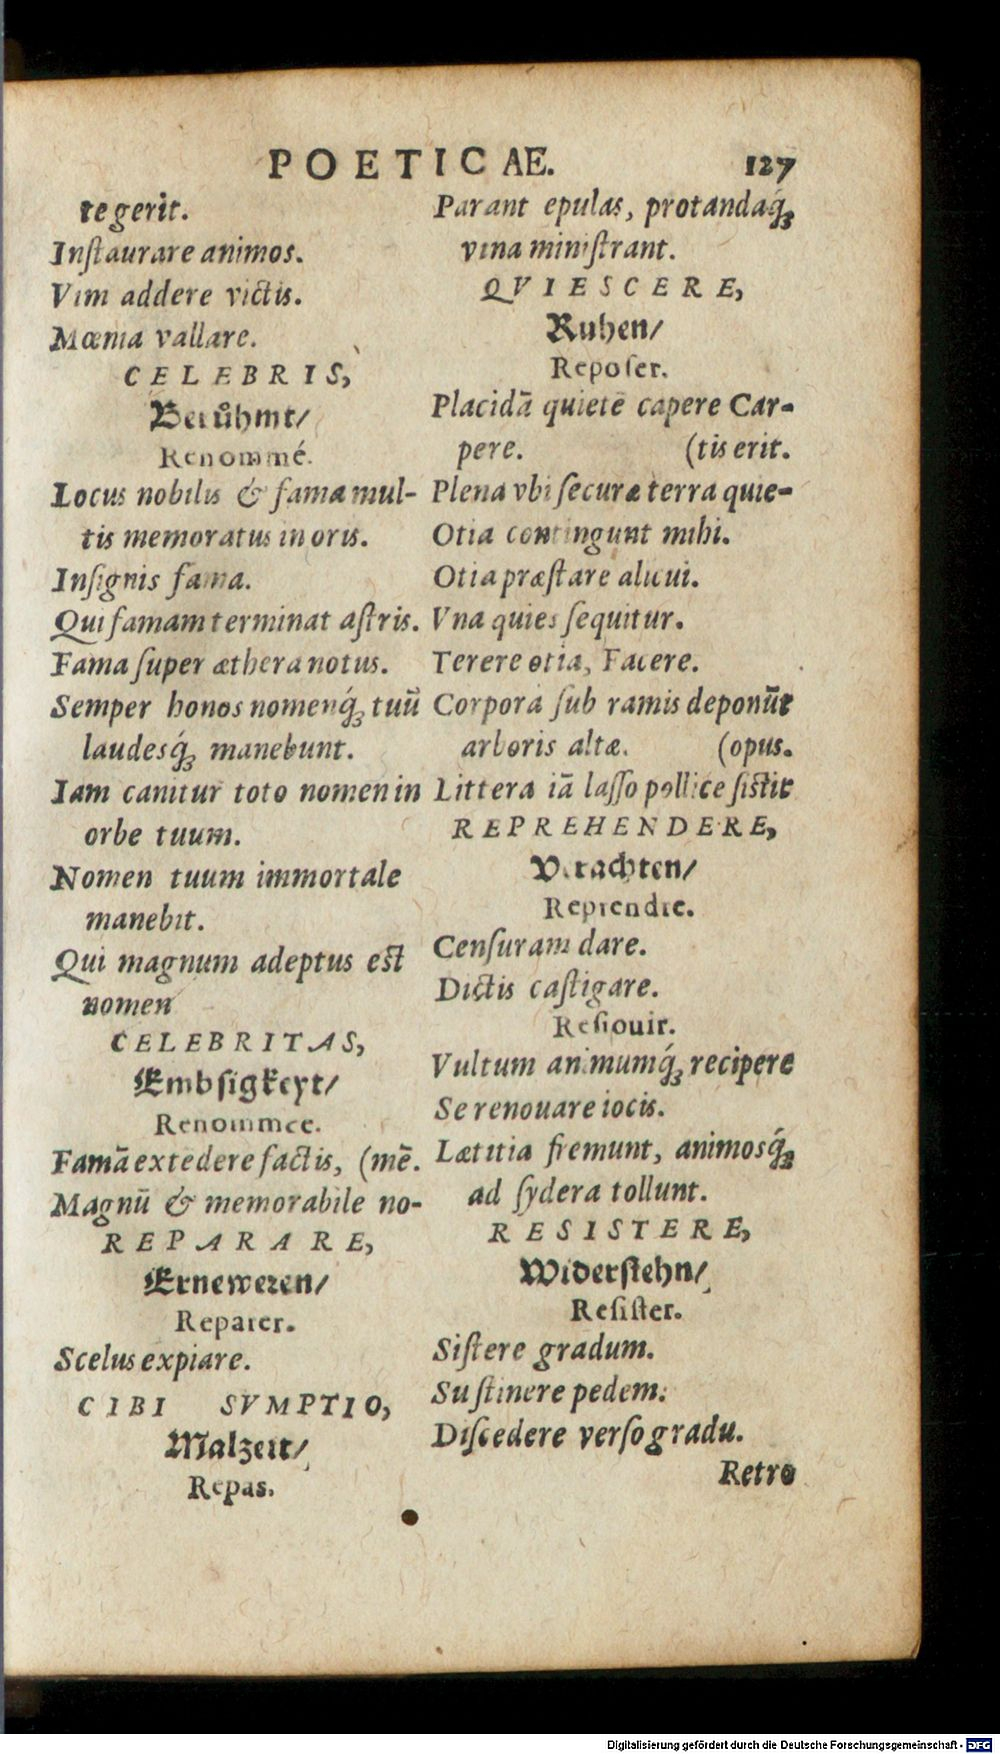 POETICAE. 127
te gerit.
Inſtaurare animos.
Vim addere victis.
Mœnia vallare.
CELEBRIS,
Berůhmt/
Renommé.
Locus nobilis & fama mul-
tis memoratus in oris.
Inſignis fama.
Qui famam terminat aſtris.
Fama ſuper æthera notus.
Semper honos nomenq́ꝫ tuū
laudesq́ꝫ manebunt.
Iam canitur toto nomen in
orbe tuum.
Nomen tuum immortale
manebit.
Qui magnum adeptus eſt
nomen
CELEBRITAS,
Embſigkeyt/
Renommee.
Famā extēdere factis, (mē.
Magnū & memorabile no-
REPARARE,
Erneweren/
Reparer.
Scelus expiare.
CIBI SVMPTIO,
Malzeit/
Repas.
Parant epulas, protandaq́ꝫ
vina miniſtrant.
QVIESCERE,
Ruhen/
Repoſer.
Placidā quietē capere Car-
pere. (tis erit.
Plena vbi ſecuræ terra quie-
Otia contingunt mihi.
Otia præſtare alicui.
Vna quies ſequitur.
Terere otia, Facere.
Corpora ſub ramis deponūt
arboris altæ. (opus.
Littera iā laſſo pollice ſiſtit
REPREHENDERE,
Verachten/
Reprendre.
Cenſuram dare.
Dictis caſtigare.
Reſiouir.
Vultum animumq́ꝫ recipere
Se renouare iocis.
Lætitia fremunt, animosq́ꝫ
ad ſydera tollunt.
RESISTERE,
Widerſtehn/
Reſiſter.
Siſtere gradum.
Suſtinere pedem.
Diſcedere verſo gradu.
Retro
Digitalisierung gefördert durch die Deutsche Forschungsgemeinschaft - DFG